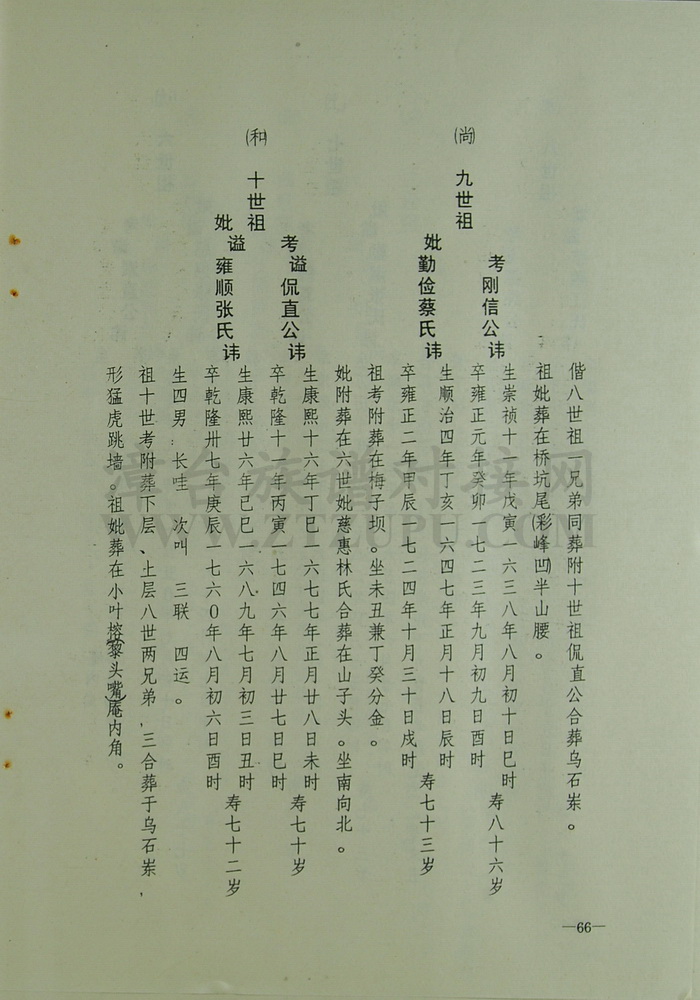 偕八世祖一兄弟同葬附十世祖侃直公合葬乌石岽。
祖妣葬在桥坑尾(彩峰凹)半山腰。
(尚)　九世祖
考刚信公讳
生崇祯十一年戊寅一六三八年八月初十日巳时
卒雍正元年癸卯一七二三年九月初九日酉时
寿八十六岁
妣勤俭蔡氏讳
生顺治四年丁亥一六四七年正月十八日辰时
卒雍正二年甲辰一七二四年十月三十日戌时
寿七十三岁
祖考附葬在梅子坝。坐未丑兼丁癸分金。
妣附葬在六世妣慈惠林氏合葬在山子头。坐南向北。
(和)　十世祖
考谥侃直公讳
生康熙十六年丁巳一六七七年正月廿八日未时
卒乾隆十一年丙寅一七四六年八月廿七日巳时
寿七十岁
妣谥雍顺张氏讳
生康熙廿六年己巳一六八九年七月初三日丑时
卒乾隆卅七年庚辰一七六0年八月初六日酉时
寿七十二岁
生四男：长哇　次叫　三联　四运。
祖十世考附葬下层、上层八世两兄弟，三合葬于乌石岽，
形猛虎跳墙。祖妣葬在小叶榕(黎头嘴)庵内角。
—66—